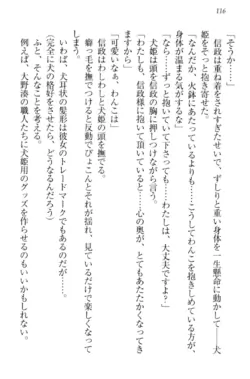 116
「そうか……」
信政は重ね着をされすぎたせいで、ずしりと重い身体を一生懸命に動かし――犬
姫をそっと抱き寄せた。
「なんだか、火鉢にあたっているよりも……こうしてわんこを抱きしめている方が、
身体が温まる気がするな」
「なら……ずっと抱いていて下さっても……わたしは、大丈夫ですよ?」
犬姫は信政の胸に頭を押しつけながら言う。
「わたしも、信政様に抱いていただけると――心の奥が、とてもとてもあったかくなり
ますから」
「可愛いなぁ、わんこは」
信政はわしわしと犬姫の頭を撫でる。
癖っ毛を撫でつけると反動でぴょこんとそれが揺れ、見ているだけで楽しくなって
くる。
いわば、犬耳状の髪形は彼女のトレードマークでもあるのだが……。
(完全に犬の格好をさせたら、どうなるんだろう)
と、そんなことを考える。
また、大野湊の職人たちに犬姫用のグッズを作らせるのもいいかもしれない。
それはともかく。